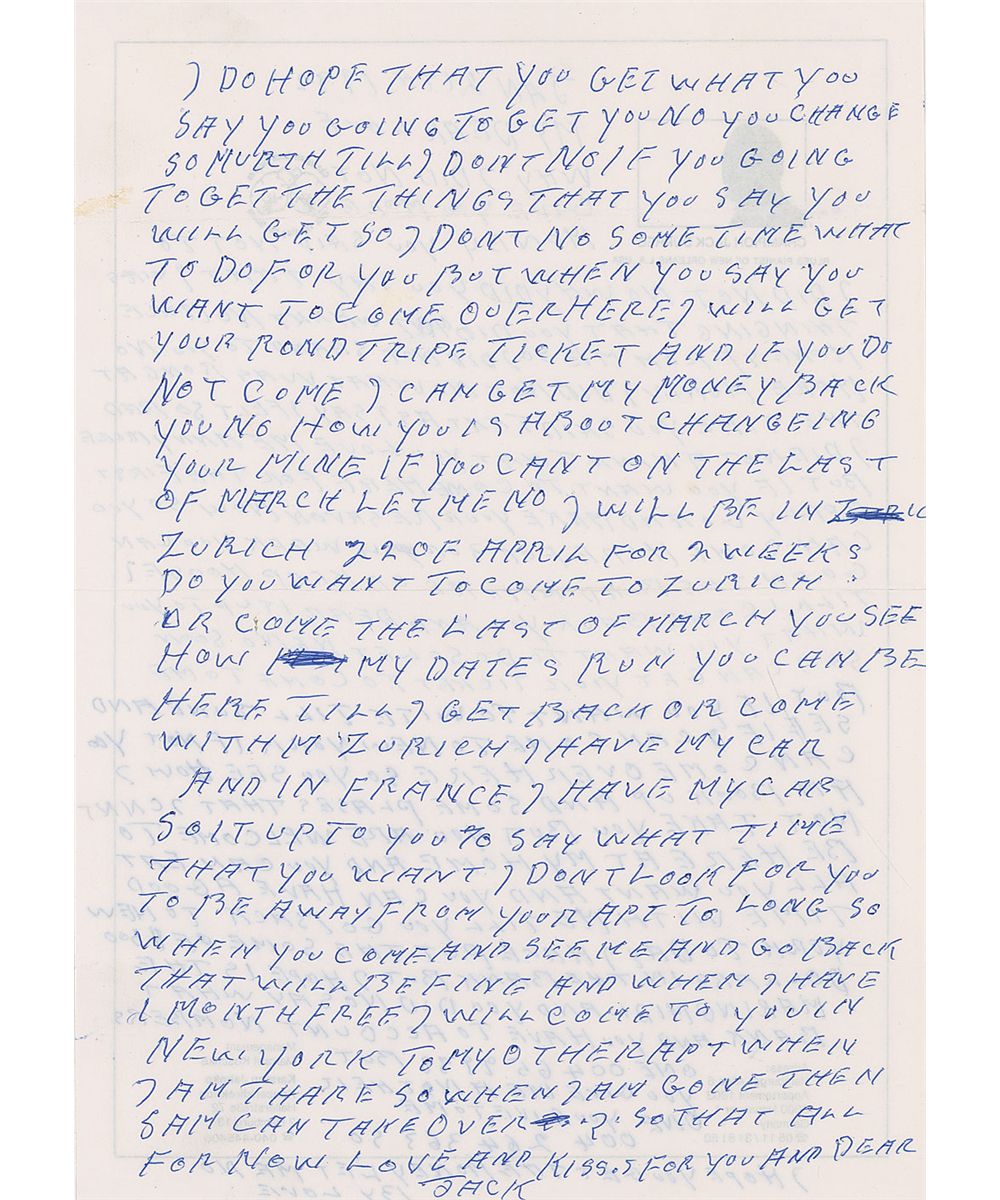 I DO HOPE THAT YOU GET WHAT YOU
SAY YOU GOING TO GET YOU NO YOU CHANGE
SO MURTH TILL I DONT NO IF YOU GOING
TO GET THE THINGS THAT YOU SAY YOU
WILL GET SO I DONT NO SOME TIME WHAT
TO DO FOR YOU BUT WHEN YOU SAY YOU
WANT TO COME OVER HERE I WILL GET
YOUR ROND TRIPE TICKET AND IF YOU DO
NOT COME I CAN GET MY MONEY BACK
YOU NO HOW YOU IS ABOUT CHANGEING
YOUR MINE IF YOU CANT ON THE LAST
OF MARCH LET ME NO I WILL BE IN
ZURICH 22 OF APRIL FOR 2 WEEKS
DO YOU WANT TO COME TO ZURICH
OR COME THE LAST OF MARCH YOU SEE
HOW MY DATES RUN YOU CAN BE
HERE TILL I GET BACK OR COME
WITH M ZURICH I HAVE MY CAR
AND IN FRANCE I HAVE MY CAR
SO IT UP TO YOU TO SAY WHAT TIME
THAT YOU WANT I DONT LOOK FOR YOU
TO BE AWAY FROM YOUR APT TO LONG SO
WHEN YOU COME AND SEE ME AND GO BACK
THAT WILL BE FINE AND WHEN I HAVE
1 MONTH FREE I WILL COME TO YOU IN
NEW YORK TO MY OTHER APT WHEN
I AM THARE SO WHEN I AM GONE THEN
SAM CAN TAKE OVER ? SO THAT ALL
FOR NOW LOVE AND KISS.S FOR YOU AND DEAR
JACK